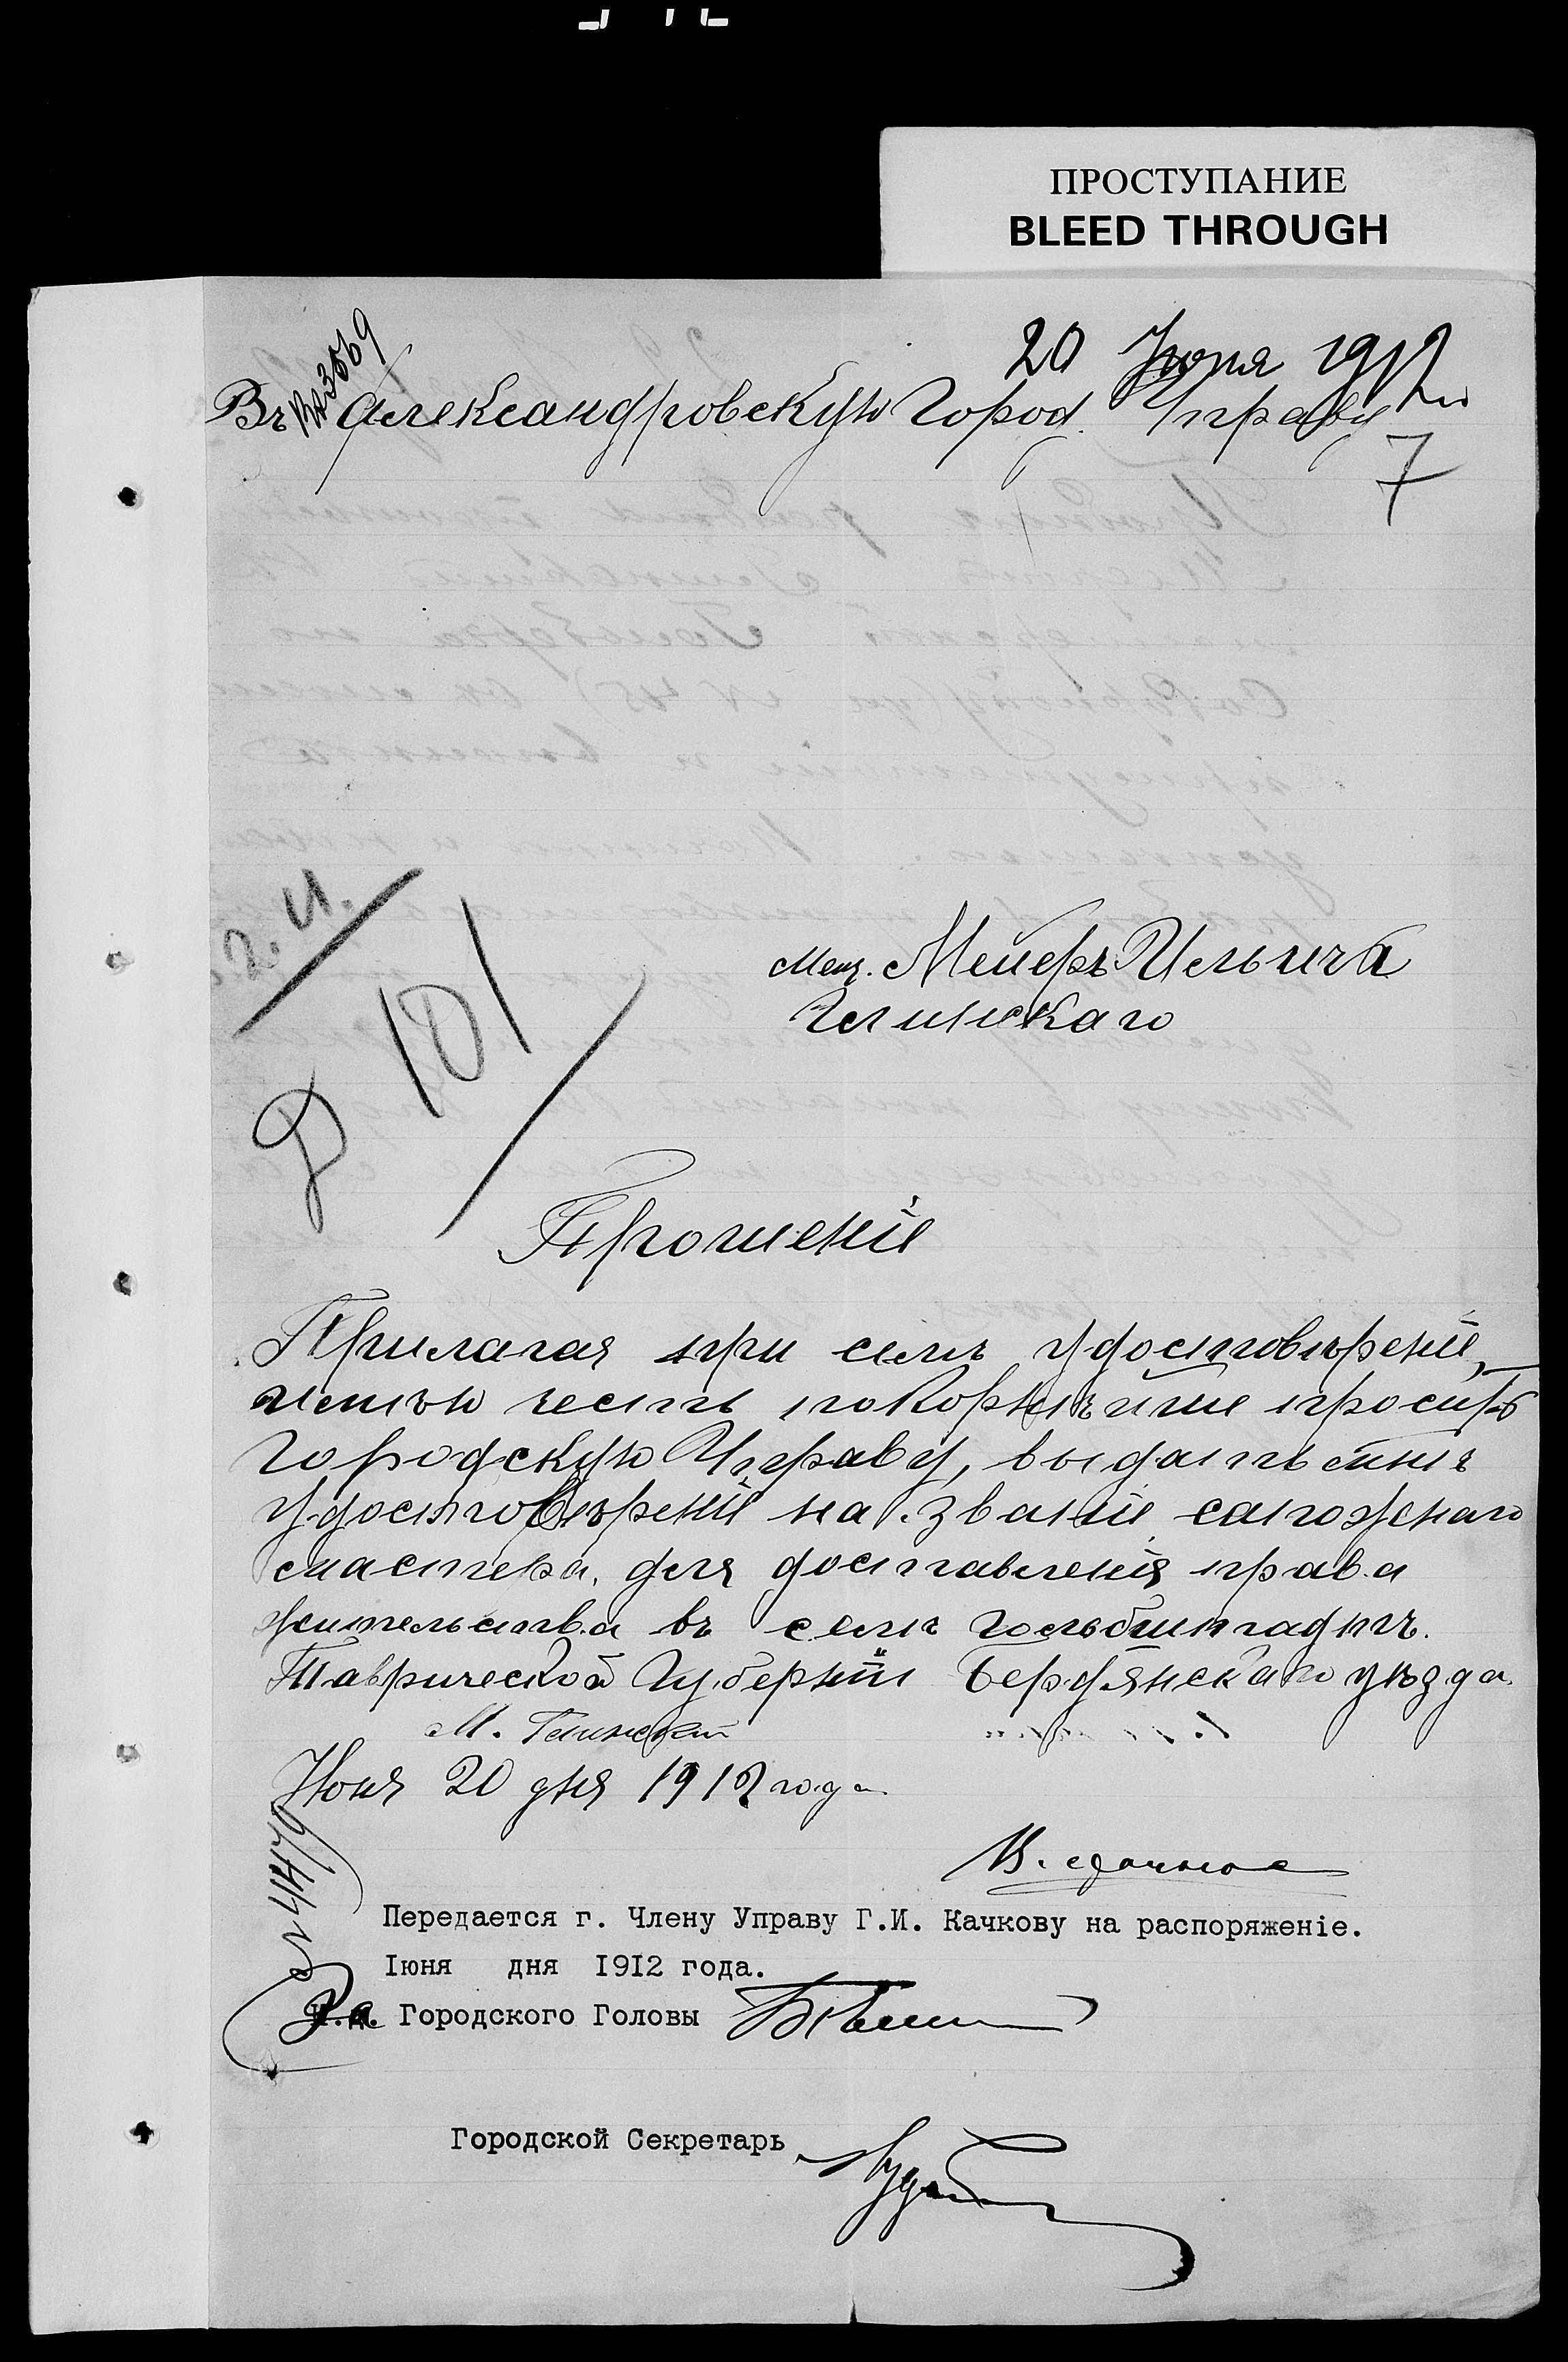 ПРОСТУПАНИЕ
BLEED THROUGH
№ 3569
20 Июня 1912
Въ Александровскую Город. Управу
7
Мещ. Мейеръ Ильича
Глинскаго
101
Прошеніе
Прилагая при семъ удостовѣреніе,
имѣю честь покорнѣйше просить
Городскую Управу, выдать мнѣ
удостовѣреніе на званіе сапожнаго
мастера, для доставленія права
жительства въ селѣ Гольбштадтъ.
Таврической Губерніи Бердянскаго уѣзда
М. Глинский
Июня 20 дня 1912 года
№ 4479
Передается г. Члену Управу Г.И. Качкову на распоряженіе.
Iюня дня I9I2 года.
За Городского Головы
Городской Секретарь